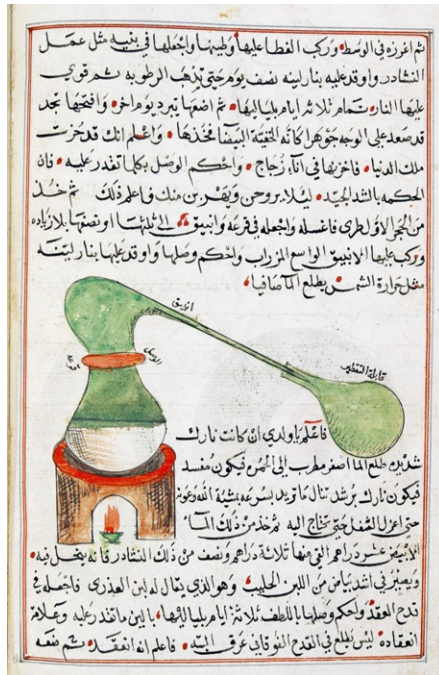 ثم اغرزه في الوسط وركب الغطا عليها وطينها واجعلها في بنيه مثل عمل
النشادر واوقد عليه بنار لينه نصف يوم حتى تذهب الرطوبه ثم قوي
عليها النار تمام ثلاثة ايام بلياليها ثم اضعها تبرد يوم اخر وافتحها تجد
قد صعد على الوجه جوهرا كانه البيضا فخذها واعلم انك قد حزت
ملك الدنيا فاخزنها في اناء زجاج واحكم الوصل بكلما تقدر عليه فان
الحكمه بالشد الجيد ليلا يروحن ويفرّن منك فاعلم ذلك ثم خذ
من الحجر الاول طري فاغسله واجعله في قرعه وانبيق الى ثلثها او نصفها بلا زياده
وركب عليها الانبيق الواسع المزراب واحكم وصلها واوقد عليها بنار لينه
مثل حرارة الشمس يطلع الما صافيا
انبيق
الوصل
قرعه
قابلة التقطير
فاعلم يا ولدي ان كانت نارك
شديده طلع الما اصفر الى الحمره فيكون مفسد
فيكون نارك برشد تنال ما تريد بسرعه بمشية الله وعونه
حتى اعزل الثفل حتى تحتاج اليه ثم خذ من ذلك الما
الابيض عشر دراهم القي منها ثلاثة دراهم ونصف من ذلك النشادر فانه ينحل فيه
ويصير في اشد بياض من اللبن الحليب وهو الذي يقال له لبن العذرى فاجعله في
قدح العقد واحكم وصلها باللطف ثلاثة ايام بلياليها بالين ما تقدر عليه وعلامة
انعقاده ليس يطلع في القدح الفوقاني عرق البته فاعلم انه انعقد ثم ضعه